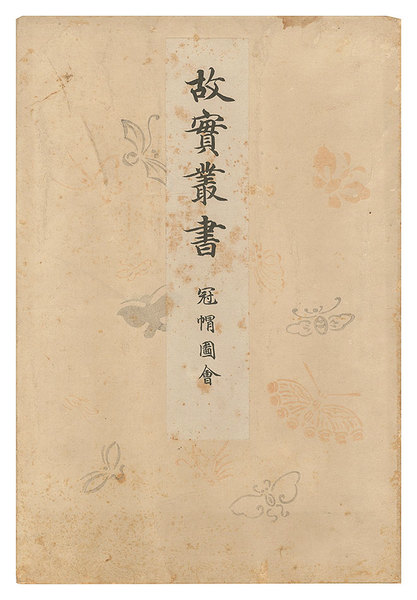 故實叢書
冠帽圖會